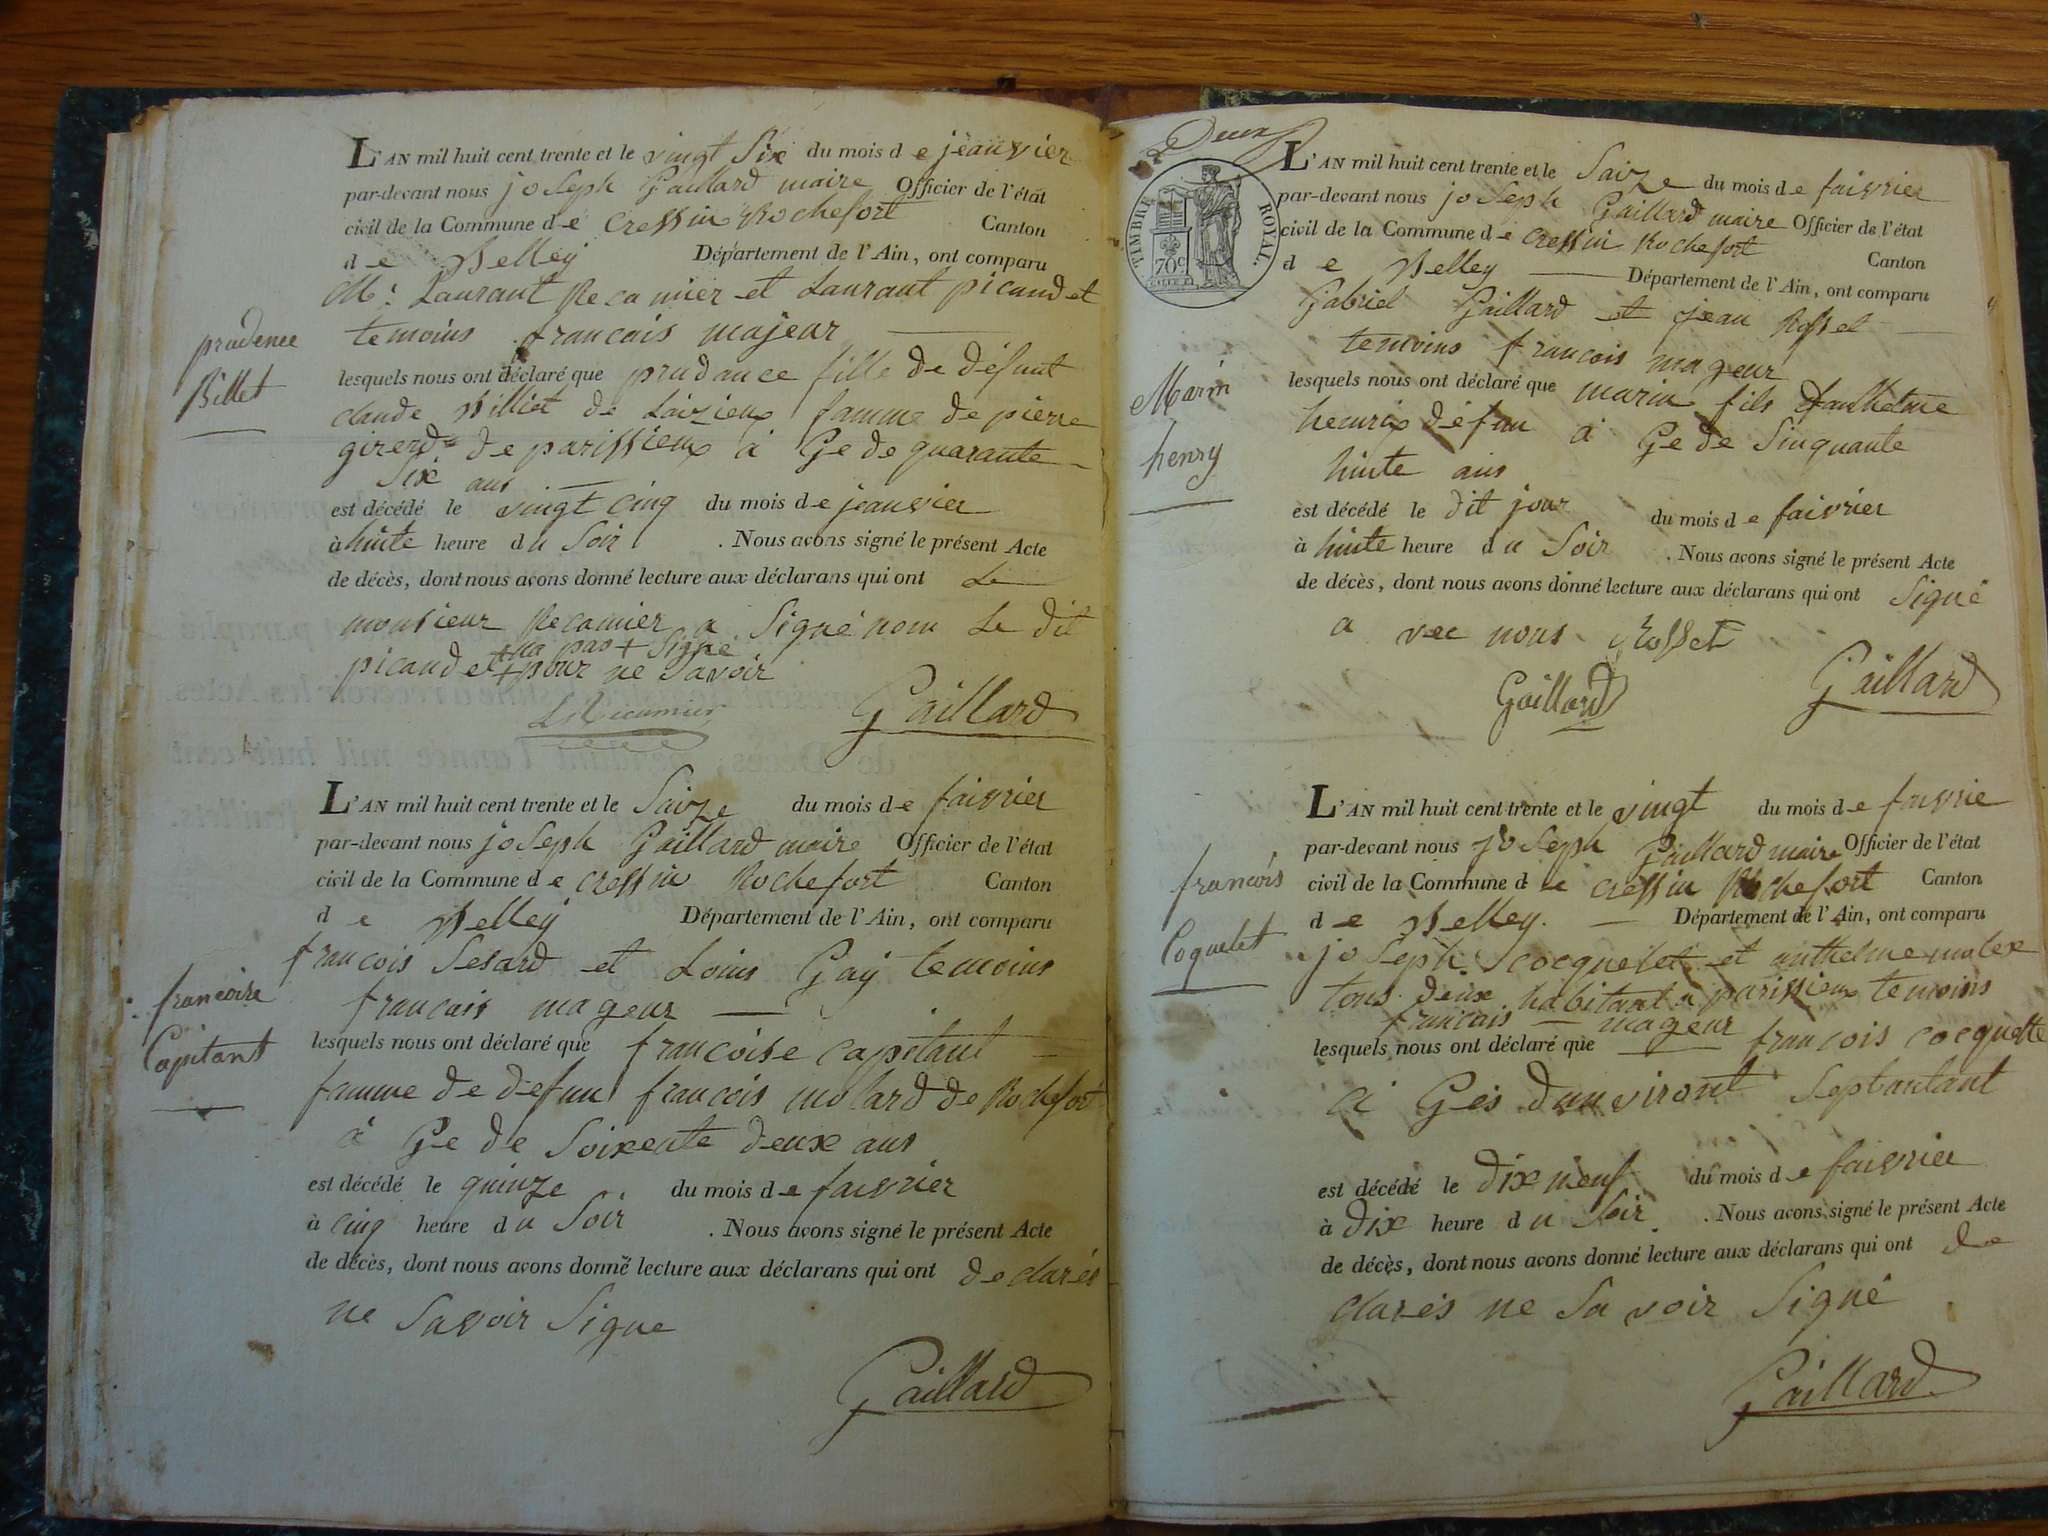 L'AN mil huit cent trente et le vingt Six du mois de jeanvier
par-devant nous joSeph Gaillard maire Officier de l'état
civil de la Commune de Cressin Rochefort Canton
de Belley Département de l'Ain, ont comparu
Mr Laurant Recamier et Laurant picaudet
temoins francais majeur
prudence
Billet
lesquels nous ont déclaré que prudance fille de défunt
claude Billiet de Loizieux famme de pierre
girerd de parissieux à Ge de quarante
Six ans
est décédé le vingt cinq du mois de jeanvier
à huite heure du Soir . Nous avons signé le présent Acte
de décès, dont nous avons donné lecture aux déclarans qui ont Le
monsieur Recamier a Signé nom Le dit
+ na pas + Signe
picaudet + pour ne Savoir
LRecamier Gaillard
L'AN mil huit cent trente et le Saize du mois de faivrier
par-devant nous joSeph Gaillard maire Officier de l'état
civil de la Commune de cressin Rochefort Canton
de Belley Département de l'Ain, ont comparu
francois Sesard et Louis Gay temoins
francais mageur
francoise
Capitant
lesquels nous ont déclaré que francoise capitant
famme de defun francois molard de Rochefort
à Ge de Soixente deux ans
est décédé le quinze du mois de faivrier
à cinq heure du Soir . Nous avons signé le présent Acte
de décès, dont nous avons donné lecture aux déclarans qui ont declarés
ne Savoir Signe
Gaillard
Deux
TIMBRE ROYAL
70c
L'AN mil huit cent trente et le Saize du mois de faivrier
par-devant nous joSeph Gaillard maire Officier de l'état
civil de la Commune de cressin Rochefort Canton
de Belley Département de l'Ain, ont comparu
Gabriel Gaillard et jean Rosset
temoins francois mageur
Marin
henry
lesquels nous ont déclaré que marin fils danthelme
henrix défun à Ge de Sinquante
huite ans
est décédé le dit jour du mois de faivrier
à huite heure du Soir . Nous avons signé le présent Acte
de décès, dont nous avons donné lecture aux déclarans qui ont Signé
a vec nous Rosset
Gaillard Gaillard
L'AN mil huit cent trente et le vingt du mois de faivrie
par-devant nous joSeph Gaillard maire Officier de l'état
civil de la Commune de cressin Rochefort Canton
de Belley. Département de l'Ain, ont comparu
francois
Coquelet
joSeph cocquelet et anthelme molex
tous deux habitant a parissieux temoins
francais mageur
lesquels nous ont déclaré que francois cocquette
à Gés dunviront Septantant
est décédé le dix neuf du mois de faivrier
à dix heure du Soir . Nous avons signé le présent Acte
de décès, dont nous avons donné lecture aux déclarans qui ont de
clarés ne Sa voir Signé
Gaillard